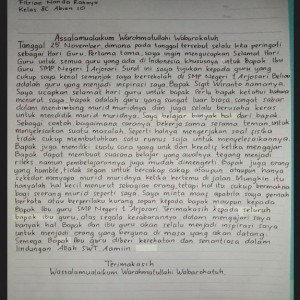 Fitriae Nanda Rahayu
Kelas 8E Absen 10
Assalamualaikum Warahmatullahi Wabarokatuh
Tanggal 25 November dimana pada tanggal tersebut selalu kita peringati
sebagai Hari Guru. Pertama tama, saya ingin mengucapkan Selamat Hari
Guru untuk semua guru yang ada di Indonesia khususnya untuk Bapak Ibu
Guru SMP Negeri 1 Arjosari. Surat ini saya tujukan kepada guru yang
cukup saya kenal semenjak saya bersekolah di SMP Negeri 1 Arjosari. Beliau
adalah guru yang menjadi inspirasi saya Bapak Sigit Wiranto namanya.
Saya ucapkan selamat hari guru untuk bapak. Perlu bapak ketahui bahwa
menurut saya bapak adalah guru yang sangat luar biasa, sangat sabar
dalam membimbing murid muridnya dan juga selalu berusaha keras
untuk mendidik murid muridnya. Saya belajar banyak hal dari bapak.
Sebagai contoh bagaimana caranya bekerja sama selama teman untuk
menyelesaikan suatu masalah. Seperti halnya mengerjakan soal fisika
tidak cukup membutuhkan satu rumus saja untuk menyelesaikannya.
Bapak juga memiliki suatu cara yang unik dan kreatif ketika mengajar.
Bapak dapat membuat suasana belajar yang awalnya tegang menjadi
rileks namun pembelajarannya juga mudah dimengerti. Bapak juga orang
yang humble, tidak segan untuk bercakap cakap ataupun hanya
sekedar menyapa murid muridnya ketika bertemu di jalan. Mungkin itu
hanyalah hal kecil menurut sebagian orang, tetapi hal itu cukup bermakna
bagi seorang murid seperti saya. Saya minta maaf apabila saya pernah
berkata atau berperilaku kurang sopan kepada bapak maupun kepada
Bapak Ibu guru SMP Negeri 1 Arjosari. Terimakasih kepada seluruh
bapak ibu guru, atas segala kesabarannya dalam mengajari saya
banyak hal. Bapak dan ibu guru akan selalu menjadi inspirasi saya
untuk menjadi orang yang berguna di masa yang akan datang.
Semoga Bapak Ibu guru diberi kesehatan dan senantiasa dalam
lindungan Allah SWT. Aamiin
Terimakasih
Wassalamualaikum Warahmatullahi Wabarokatuh